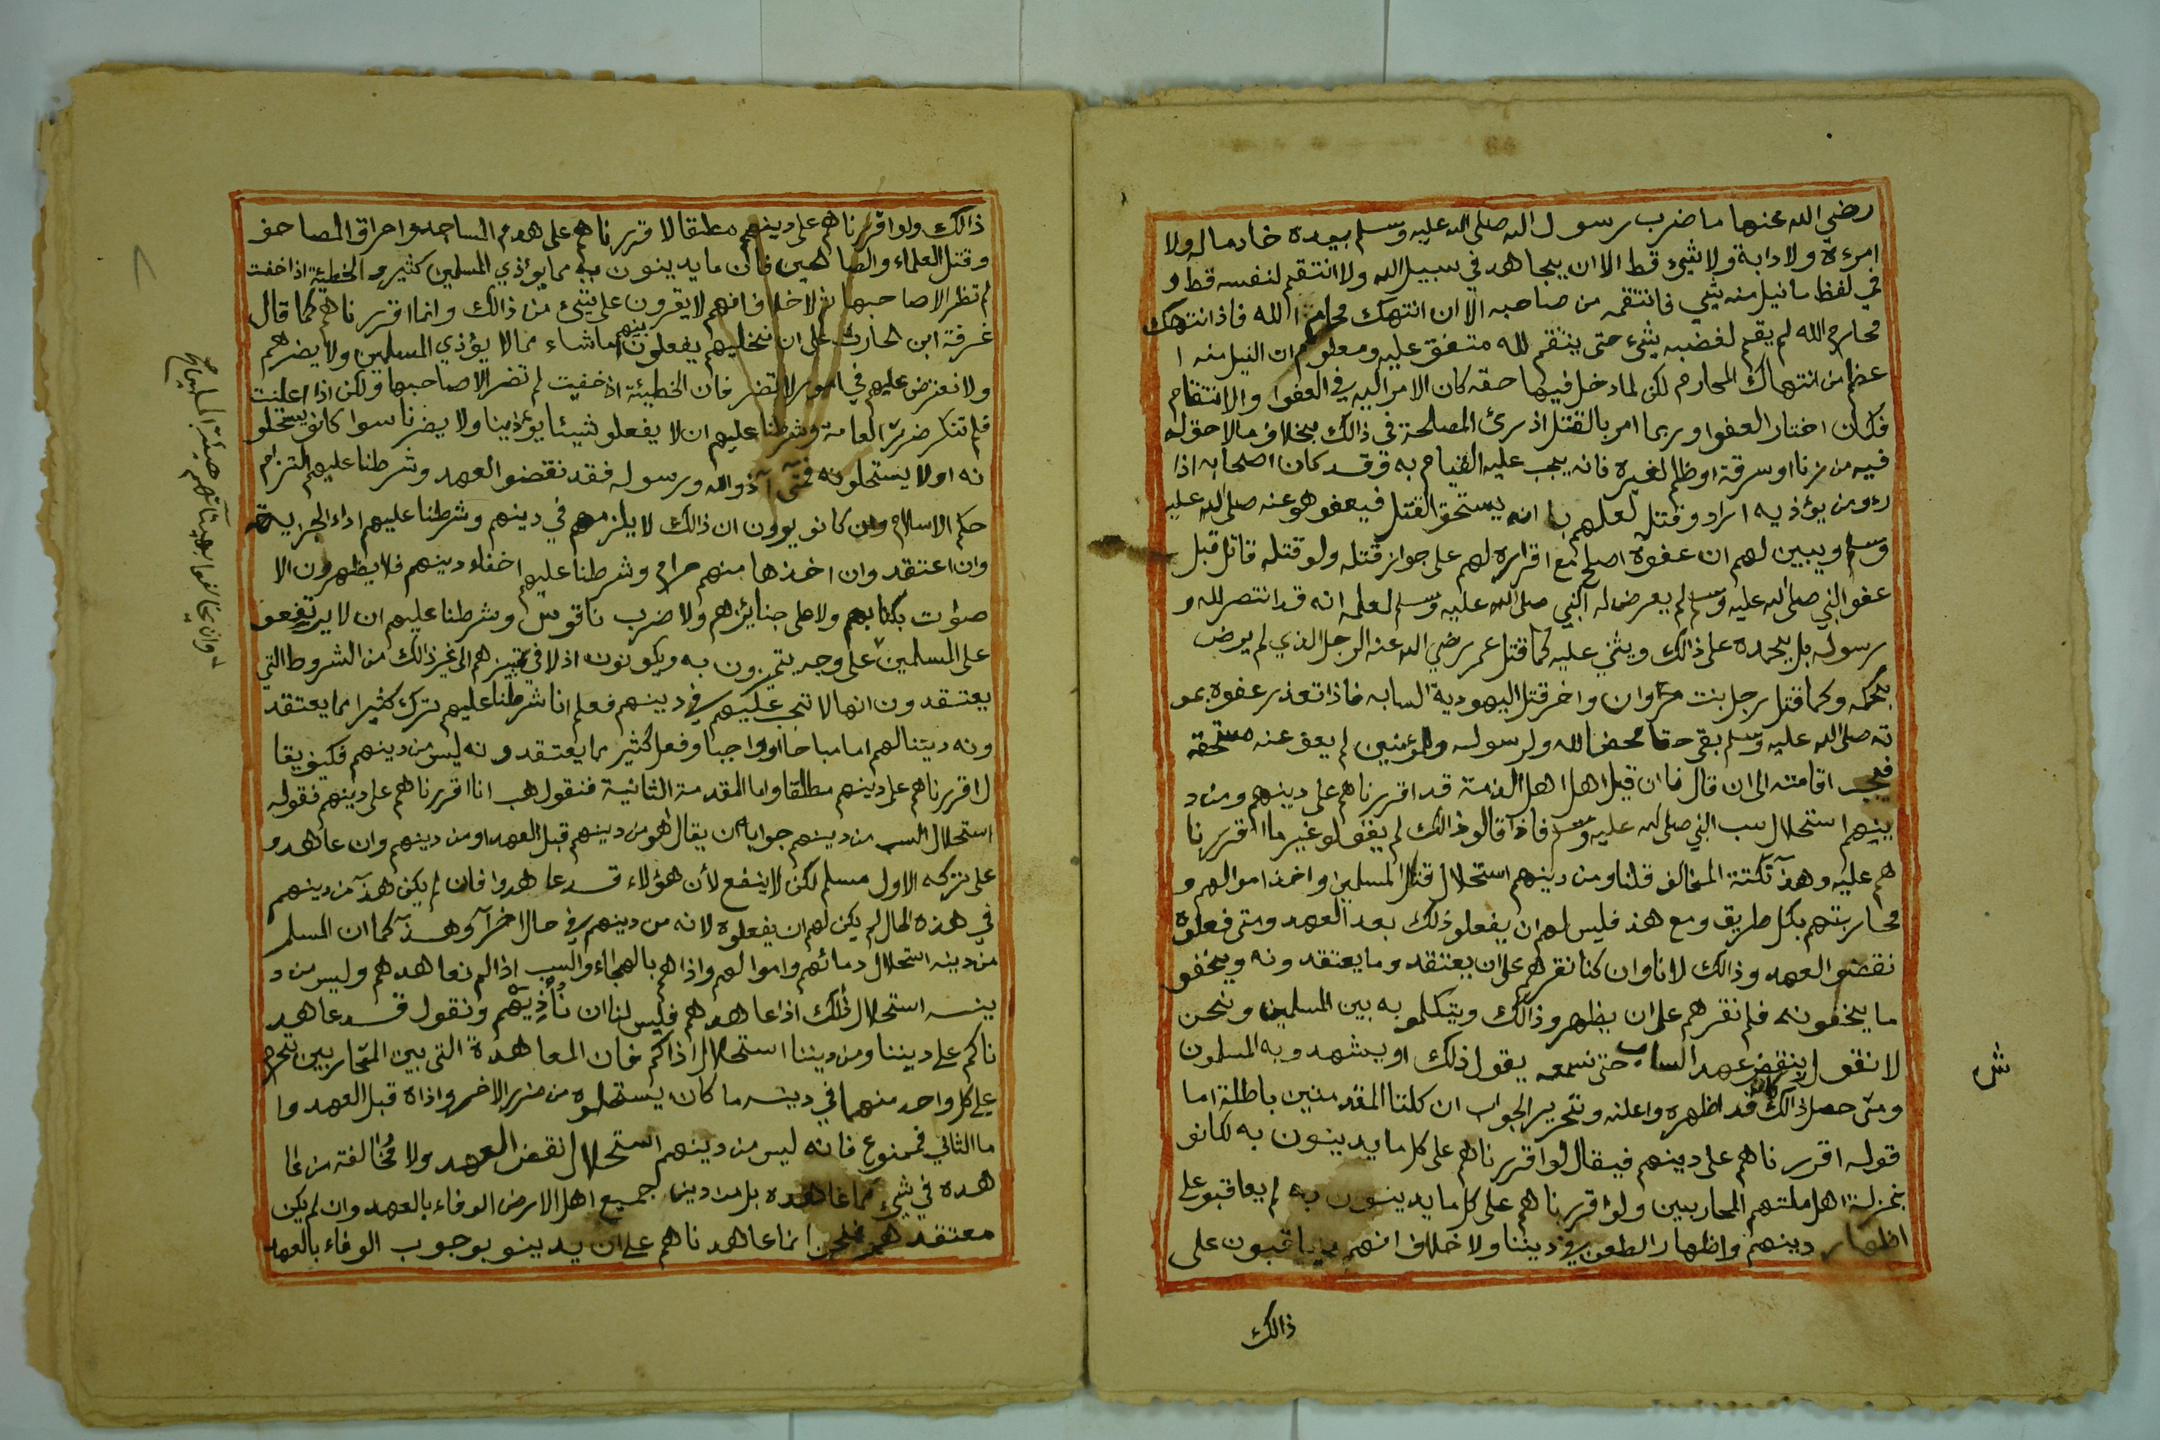 رضي الله عنها ما ضرب رسول الله صلى الله عليه وسلم بيده خادما له ولا
امرءة ولا دابة ولا شيئ قط الا ان يجاهد في سبيل الله ولا انتقم لنفسه قط و
في لفظ ما نيل منه شي فانتقمه من صاحبه الا ان انتهك محارم الله فاذا انتهك
محارم الله لم يقم لغضبه شيء حتى ينتقم لله متفق عليه ومعلوم ان النيل منه ا
عظم من انتهاك المحارم لكن لما دخل فيها حقه كان الامر اليه في العفوا والانتقام
فكان اختار العفوا وربما امر بالقتل اذ رئ المصلحة في ذالك بخلاف ما لا حق له
فيه من زنا او سرقة او ظلم لغيره فانه يجب عليه القيام به وقد كان اصحابه اذا
رءو من يؤذيه اراد و قتله لعلمهم با انه يستحق القتل فيعفو هو عنه صلى الله عليه
وسلم ويبين لهم ان عفوه اصلح مع اقراره لهم على جواز قتله ولو قتله قاتل قبل
عفو النبي صلى الله عليه وسلم لم يعرض له النبي صلى الله عليه وسلم لعلمه انه قد انتصر لله و
رسوله بل يحمده على ذالك ويثني عليه كما قتل عمر رضي الله عنه الرجل الذي لم يرض
بحكمه وكما قتل رجل بنت مروان واخر قتل اليهودية السابه فاذا تعذر عفوه بمو
ته صلى الله عليه وسلم بقي حقا محضا لله ولرسوله وللمؤمنين لم يعف عنه مستحقه
فيجب اقامته الى ان قال فان قيل اهل اهل الذمة قد اقررناهم على دينهم ومن د
ينهم استحلال سب النبي صلى الله عليه وسلم فاذا قالو ذالك لم يفعلو غير ما اقررنا
هم عليه وهذ نكتة المخالف قلنا ومن دينهم استحلال قتال المسلمين واخذ اموالهم و
محاربتهم بكل طريق ومع هذ فليس لهم ان يفعلو ذلك بعد العهد ومتى فعلوه
نقضو العهد وذالك لانا وان كنا نقرهم على ان يعتقد وما يعتقد ونه ويخفو
ما يخفونه فلم نقرهم على ان يظهرو ذالك ويتكلمو به بين المسلمين ونحن
لا نقول بنقض عهد الساب حتى نسمعه يقول ذلك او يشهد وبه المسلمون
ومتى حصل ذالك كان قد اظهره واعلنه وتحرير الجواب ان كلتا المقدمتين باطلة اما
قوله اقررناهم على دينهم فيقال لو اقررناهم على كل ما يدينون به لكانو
بمنزلة اهل ملتهم المحاربين ولو اقررناهم على كل ما يدينون به لم يعاقبو على
اظهار دينهم واظهار الطعن في ديننا ولا خلاف انهم يعاقبون على
ذالك
ش
ذالك ولو اقررناهم على دينهم مطلقا لاقررناهم على هدم المساجد واحراق المصاحف
وقتل العلماء والصالحين فان ما يدينون به مما يؤذي المسلمين كثير والخطيئة اذا خفت
لم تظر الا صاحبها ثم لا خلاف انهم لا يقرون على شيئ من ذالك وانما اقررناهم كما قال
غرفة ابن الحارث على ان نخليهم يفعلون بينهم ما شاء مما لا يؤذي المسلمين ولا يضرهم
ولا نعترض عليهم في امور لا تضر فان الخطيئة اذ خفيت لم تضر الا صاحبها ولكن اذا اعلنت
فلم تنكر ضرت العامة وشرطنا عليهم ان لا يفعلو شيئا يؤذينا ولا يضرنا سوا كانو يستحلو
نه او لا يستحلونه فمتى آذو الله ورسوله فقد نقضو العهد وشرطنا عليهم التزام
حكم الاسلام وان كانو يرون ان ذالك لا يلزمهم في دينهم وشرطنا عليهم اداء الجزية
وان اعتقد وان اخذها منهم حرام وشرطنا عليهم اخفاء دينهم فلا يظهرون الا
صوات بكتابهم ولا على جنايزهم ولا ضرب ناقوس وشرطنا عليهم ان لا يرتفعو
على المسلمين على وجه يتميزون به ويكونون اذلا في تمييزهم الى غير ذالك من الشروط التي
يعتقدون انها لا تجب عليهم في دينهم فعلم انا شرطنا عليهم ترك كثيرا مما يعتقد
ونه دينا لهم اما مباحا او واجبا وفعل كثير مما يعتقدونه ليس من دينهم فكيف يقا
ل اقررناهم على دينهم مطلقا واما المقدمة الثانية فنقول هب انا اقررناهم على دينهم فقوله
استحلال السب من دينهم جوابه ان يقال اهو من دينهم قبل العهد او من دينهم وان عاهدو
على تركه الاول مسلم لكن لا ينفع لأن هؤلاء قد عاهدوا فان لم يكن هذ من دينهم
في هذه الحال لم يكن لهم ان يفعلوه لانه من دينهم في حال اخر آ وهذ كما ان المسلم
من دينه استحلال دمائهم واموالهم واذاهم بالهجاء والسب اذا لم نعاهدهم وليس من د
ينه استحلال ذلك اذا عاهدهم فليس لنا ان نأذيهم ونقول قد عاهد
ناكم على ديننا ومن ديننا استحلال اذاكم فان المعاهدة التي بين المتحاربين تحرم
على كل واحد منهما في دينه ما كان يستحلوه من ضرر الاخر واذاه قبل العهد وا
ما الثاني فممنوع فانه ليس من دينهم استحلال نقض العهد ولا مخالفة من عا
هده في شي مما عاهده بل من دين جميع اهل الارض الوفاء بالعهد وان لم يكن
معتقدهم فنحن انما عاهدناهم على ان يدينو بوجوب الوفاء بالعهد